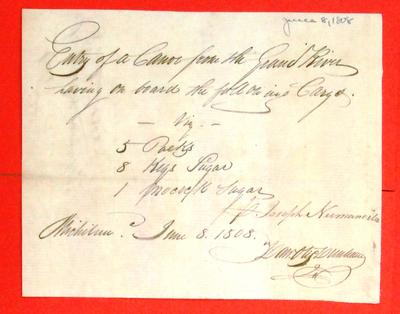 June 8, 1808
Entry of a Canoe from the Grand River
having on board the following Cargo.
Viz.
5 Packs
8 Kegs Sugar
1 Mocock Sugar
Joseph
Michilima.c June 8. 1808.